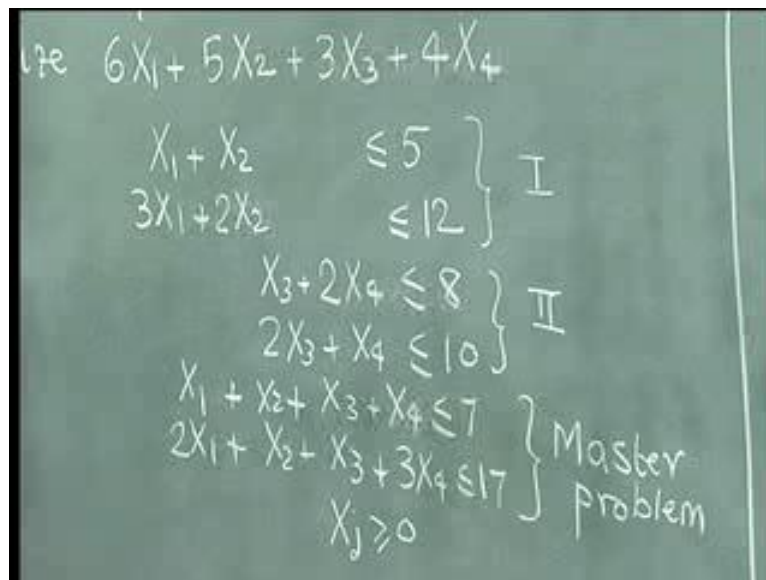 ize 6X₁ + 5X₂ + 3X₃ + 4X₄
X₁ + X₂ ≤ 5
3X₁ + 2X₂ ≤ 12
I
X₃ + 2X₄ ≤ 8
2X₃ + X₄ ≤ 10
II
X₁ + X₂ + X₃ + X₄ ≤ 7
2X₁ + X₂ + X₃ + 3X₄ ≤ 17
Master
problem
Xj ≥ 0